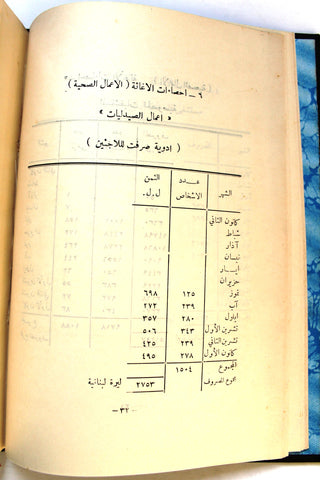 ٦ ـ احصاءات الاغاثة ( الاعمال الصحية )
« اعمال الصيدليات »
( ادوية صرفت للاجئين )
الشهر عدد الاشخاص الثمن ل.ل.
كانون الثاني
شباط
آذار
نيسان
ايار
حزيران
تموز ١٢٥ ٦٩٨
آب ٢٣٩ ٢٧٢
ايلول ٢٨٠ ٣٥٧
تشرين الأول ٣٤٣ ٥٠٦
تشرين الثاني ٢٣٩ ٤٢٥
كانون الأول ٢٧٨ ٤٩٥
المجموع ١٥٠٤
مجموع المصروف ٢٧٥٣ ليرة لبنانية
ـ ٣٢ ـ